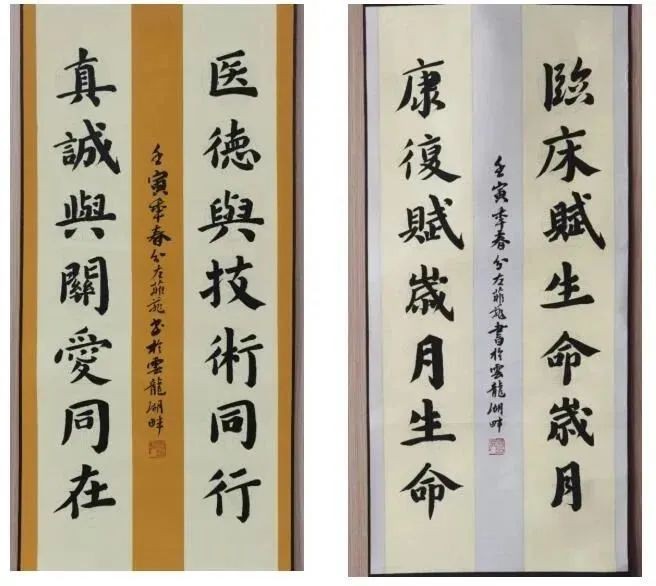 医德與技術同行
壬寅秊春分左菲书於雲龍湖畔
真誠與關愛同在
臨床賦生命歲月
壬寅秊春分左菲書於雲龍湖畔
康復賦歲月生命